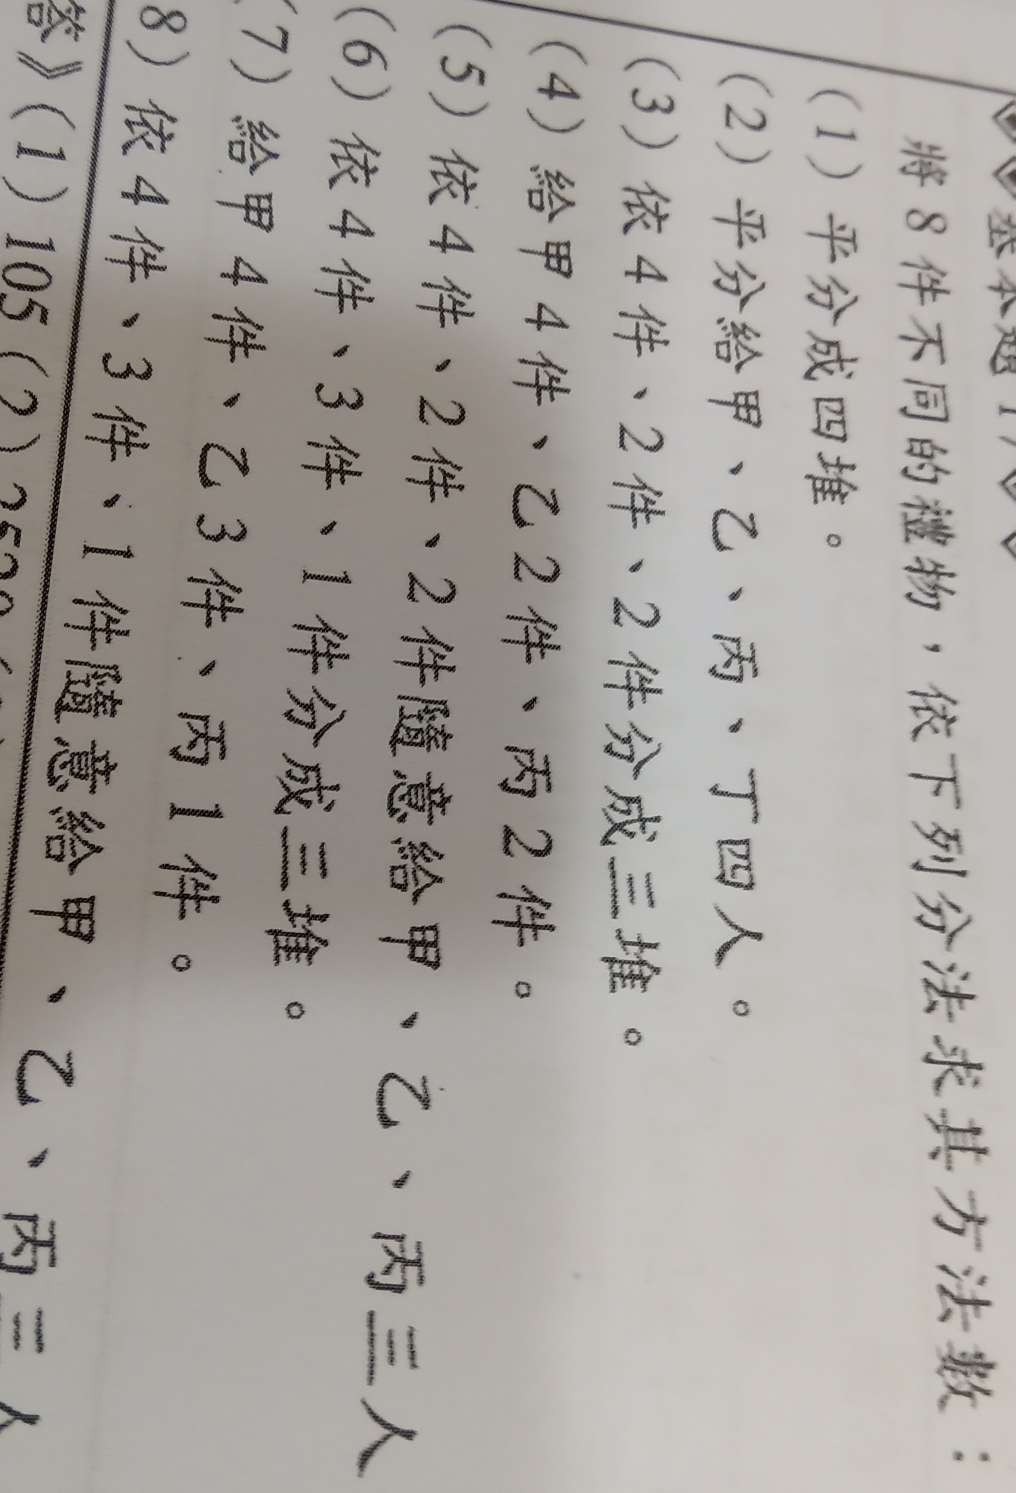 基本題 17
將8件不同的禮物，依下列分法求其方法數：
(1) 平分成四堆。
(2) 平分給甲、乙、丙、丁四人。
(3) 依4件、2件、2件分成三堆。
(4) 給甲4件、乙2件、丙2件。
(5) 依4件、2件、2件隨意給甲、乙、丙三人
(6) 依4件、3件、1件分成三堆。
7) 給甲4件、乙3件、丙1件。
8) 依4件、3件、1件隨意給甲、乙、丙三人
答》(1) 105 (2) 2520